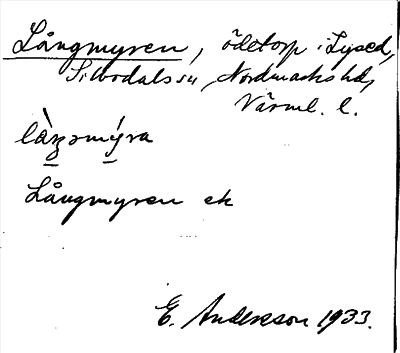 Långmyren, ödetorp i Lysed,
Silbodals sn, Nordmarks hd,
Värml. l.
làŋəmýra
Långmyren ek
E. Andersson 1933.